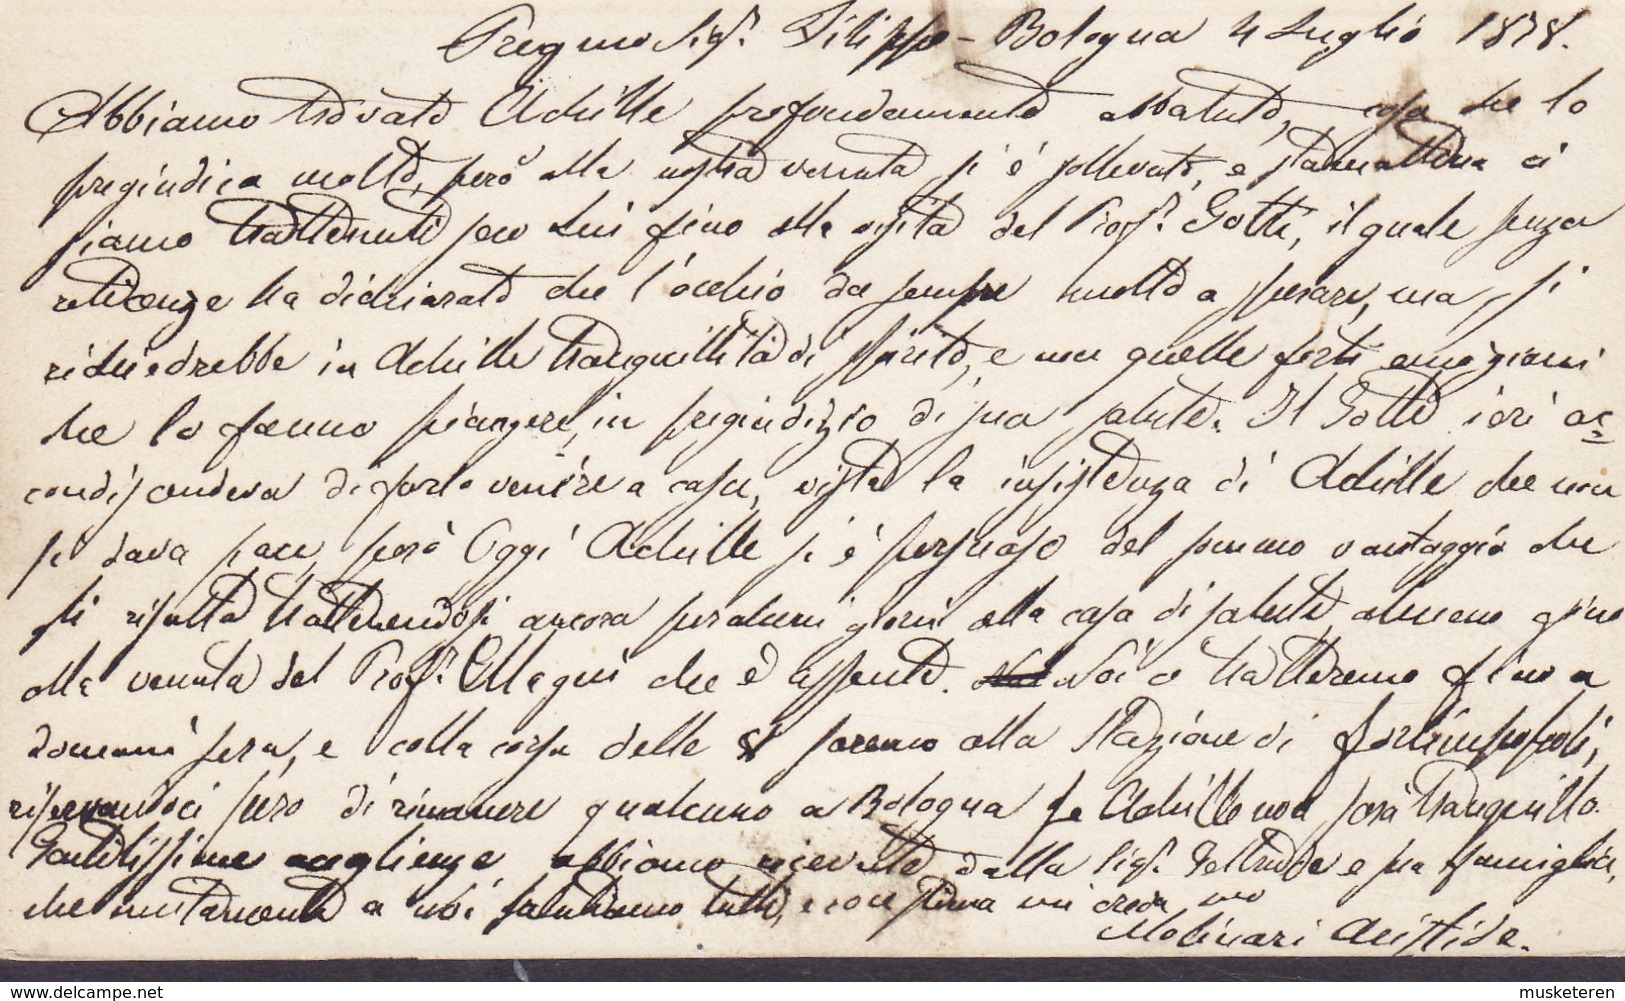 Pregmo Sigr. Filippo - Bologna 4 Luglio 1878.
Abbiamo trovato Achille profondamente abbatuto, cosa che lo
pregiudica molto, però alla nostra venuta si è sollevato, e stamattina ci
siamo trattenuti per Lui fino alla visita del Profr. Gotti, il quale senza
reticenze ha dichiarato che l'occhio da sempre molto a sperare, ma si
richiedrebbe in Achille tranquillità di spirito, e non quelle forti emozioni
che lo fanno piangere, in pregiudizio di sua salute. Il Gotti ieri ac=
condiscendeva di farlo venire a casa, vista la insistenza di Achille che non
si dava pace, però Oggi Achille si è persuaso del sommo vantaggio che
gli risulta trattenendosi ancora per alcuni giorni alla casa di salute almeno fino
alla venuta del Profr. Magni che è assente. Noi ci tratteremo fino a
domani sera, e colla corsa delle 8 saremo alla Stazione di Forlimpopoli,
riservandoci però di rimanere qualcuno a Bologna se Achille non sarà tranquillo.
Gentilissime accoglienze abbiamo ricevute dalla Sigr. Geltrude e sua famiglia,
che unitamente a noi salutiamo tutti, e con stima mi creda suo
Molinari Aristide.
musketeren.dk
musketeren